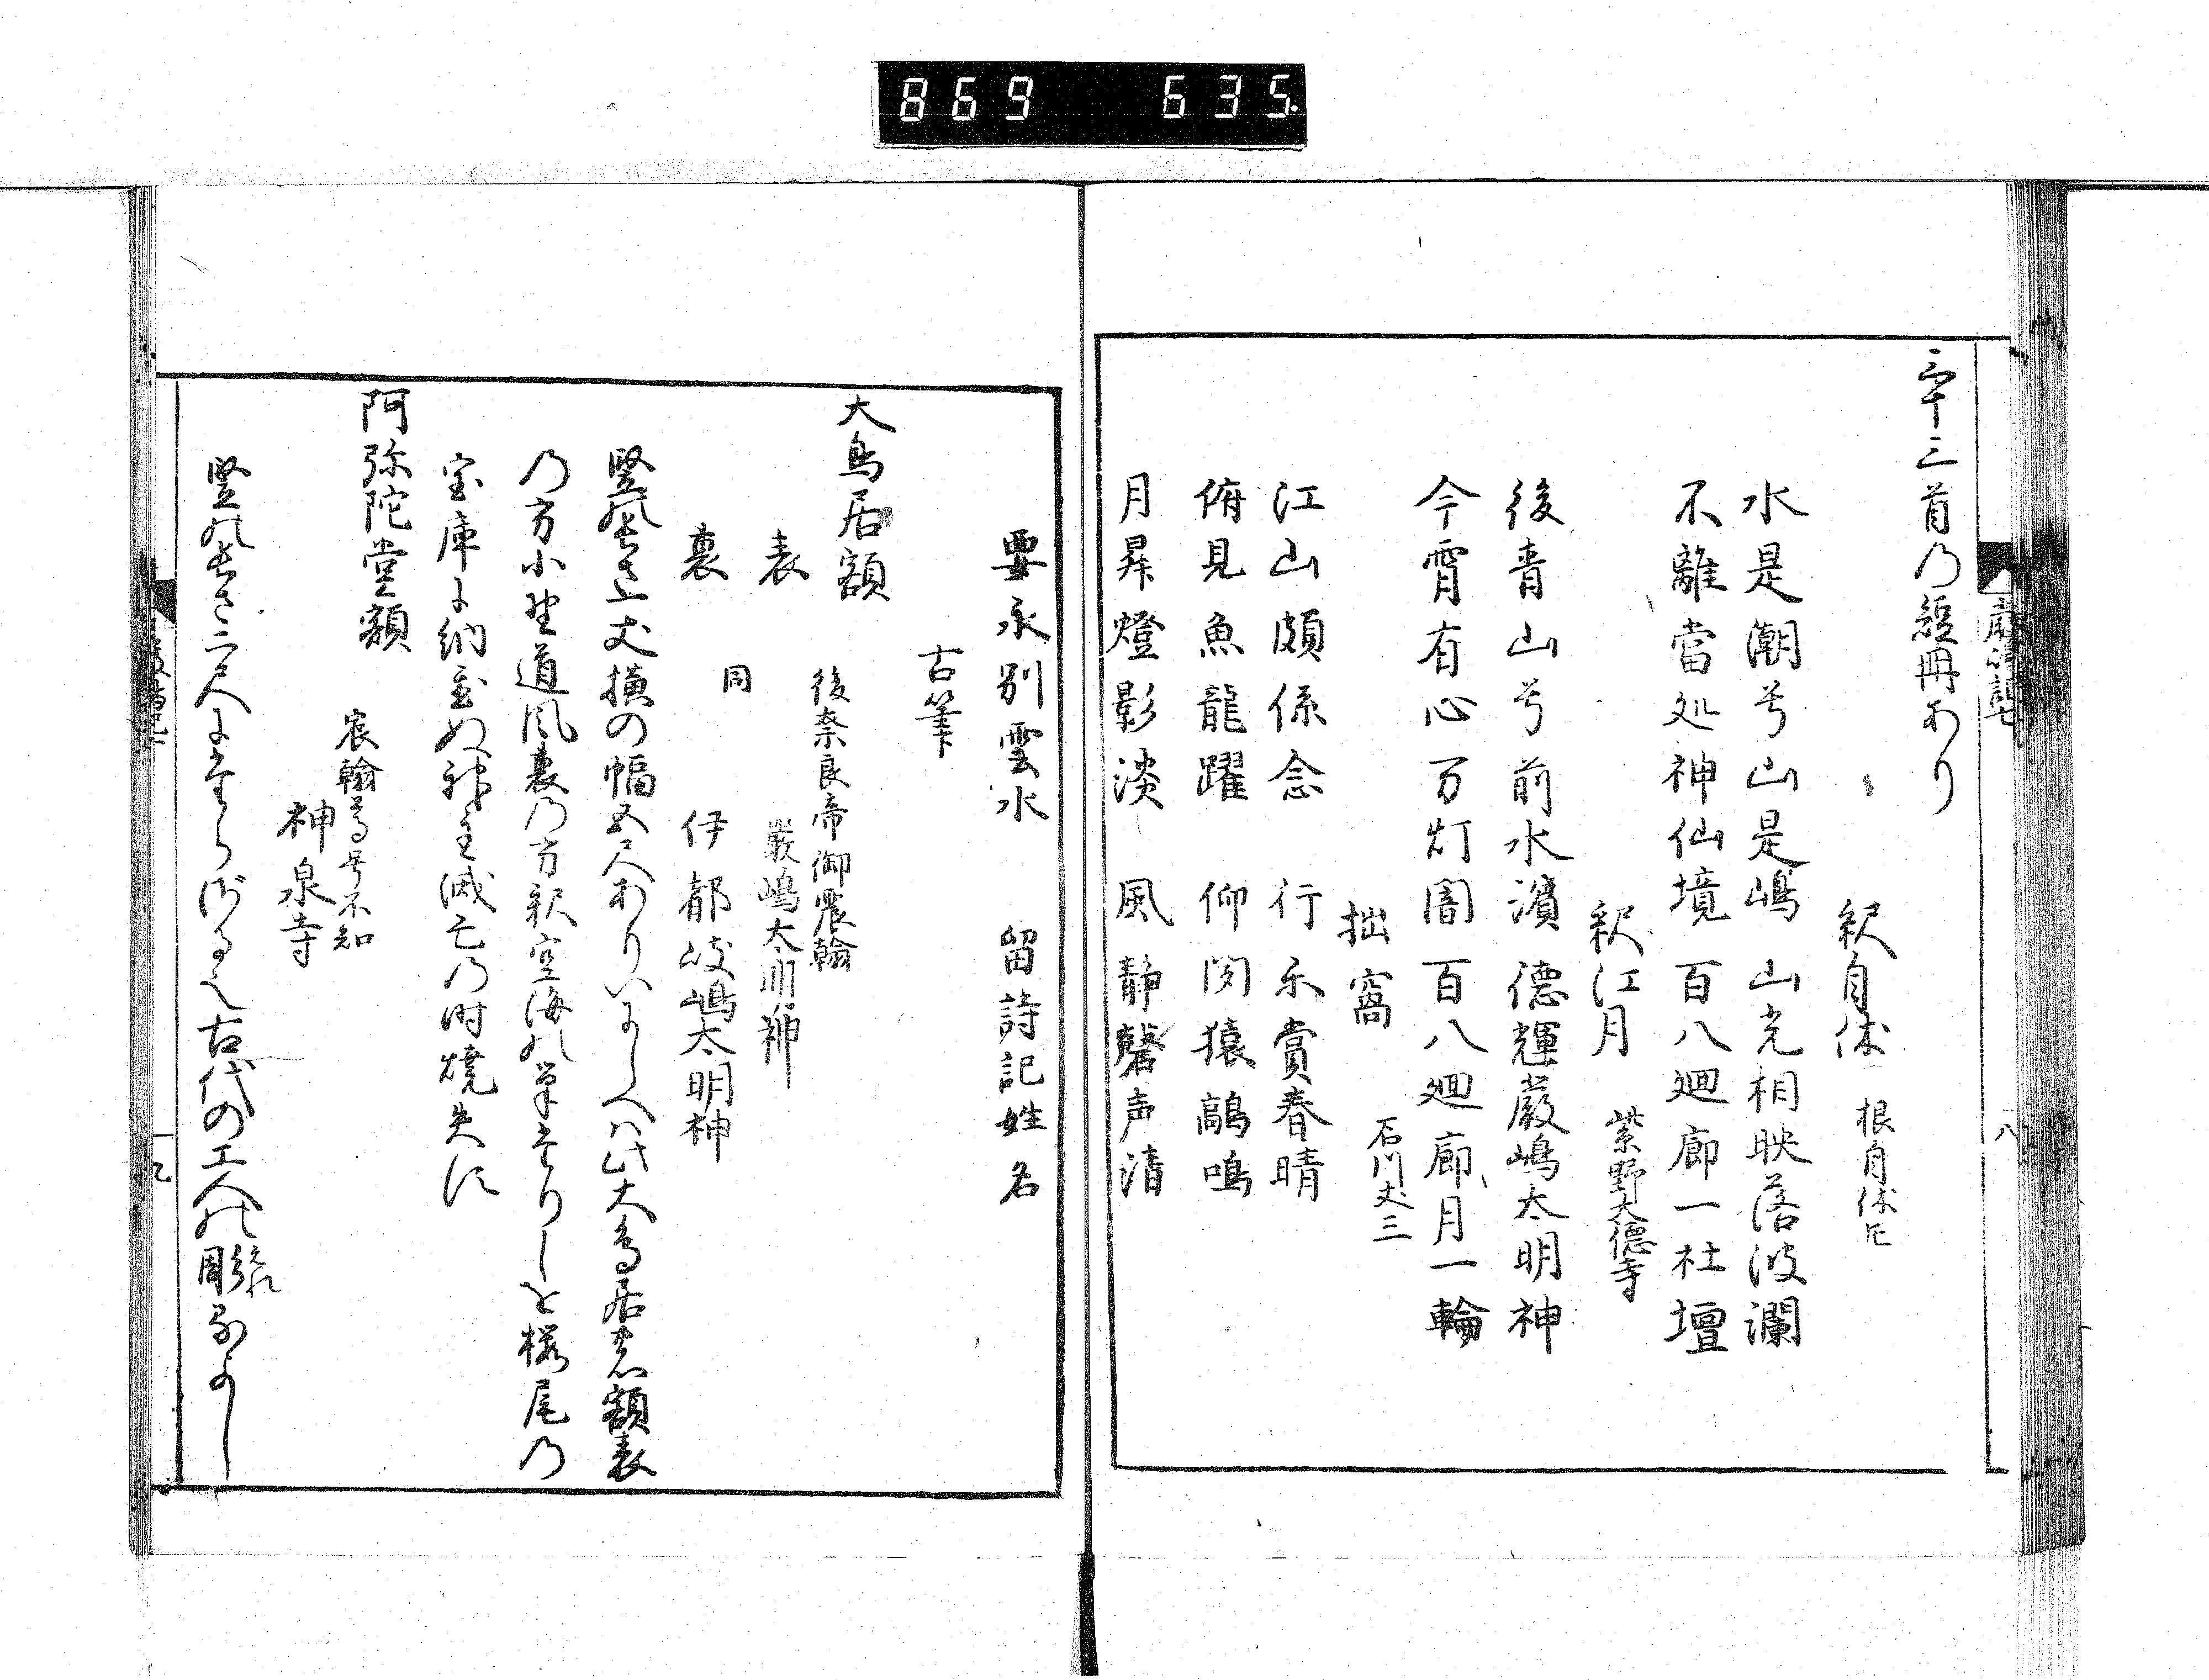 869 635
三十三首乃短冊あり
釈自休 根自休庵
水是潮兮山是嶋 山光相映落波瀾
不離當処神仙境 百八廻廊一社壇
釈江月 紫野大德寺
後青山兮前水濱 德輝嚴嶋太明神
今霄有心万灯闇 百八廻廊月一輪
拙窩 石川丈三
江山頗係念 行乐賞春晴
俯見魚龍躍 仰闵猿鶮鳴
月昇燈影淡 風静磬声清
要永别雲水 留詩記姓名
古筆
大鳥居額
後奈良帝御宸翰
表 嚴嶋太明神
同
裏 伊都岐嶋太明神
竪乃長さ一丈横の幅五尺ありいにしへハ此大鳥居の額表
乃方小野道風裏乃方釈空海の筆なりしを桜尾乃
宝庫に納至ぬ神主滅亡乃时燒失に
阿弥陀堂額
宸翰尊号不知
神泉寺
竪の長さ二尺にたらざる也古代の工人の彫るよし